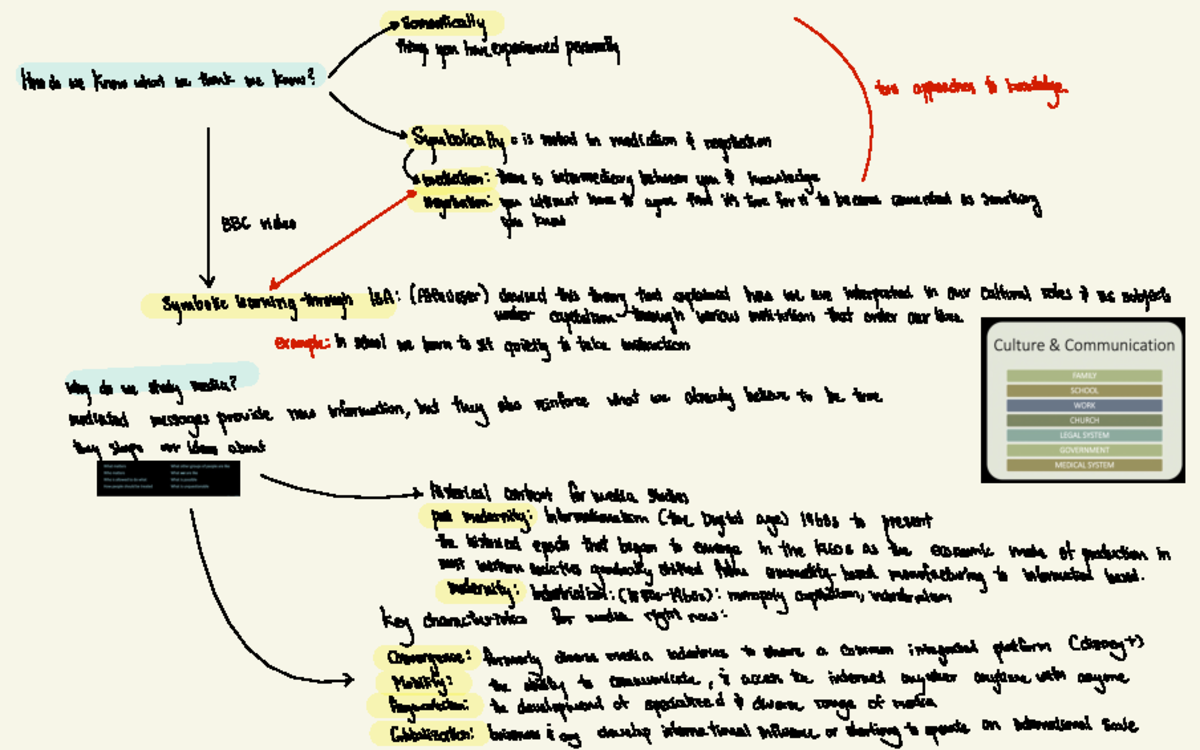 Somatically
things you have experienced personally
How do we know what we think we know?
two approaches to knowledge
Symbolically = is rooted in mediation & negotiation
mediation: there is intermediary between you & knowledge
negotiation: you will have to agree that it's true for it to become connected as something
you know
BBC video
Symbolic learning through ISA: (Althusser) devised this theory that explained how we are interpolated in our cultural roles & as subjects
under capitalism through various institutions that order our lives.
example: in school we learn to sit quietly to take instruction
Culture & Communication
FAMILY
SCHOOL
WORK
CHURCH
LEGAL SYSTEM
GOVERNMENT
MEDICAL SYSTEM
Why do we study media?
mediated messages provide new information, but they also reinforce what we already believe to be true
they shape our ideas about
What matters
Who matters
Who is allowed to do what
How people should be treated
What other groups of people are like
What we are like
What is possible
What is unquestionable
historical context for media studies
post modernity: Informationalism (the Digital age) 1960s to present
the historical epoch that began to emerge in the 1960s as the economic mode of production in
most western societies gradually shifted from commodity-based manufacturing to information based.
modernity: Industrialism: monopoly capitalism,
Key characteristics for media right now:
Convergence: formerly diverse media industries to share a common integrated platform (disney+)
Mobility: the ability to communicate, & access the internet anywhere anytime with anyone
Fragmentation: the development of specialized & diverse range of media
Globalization: business & org develop international influence or starting to operate on international scale